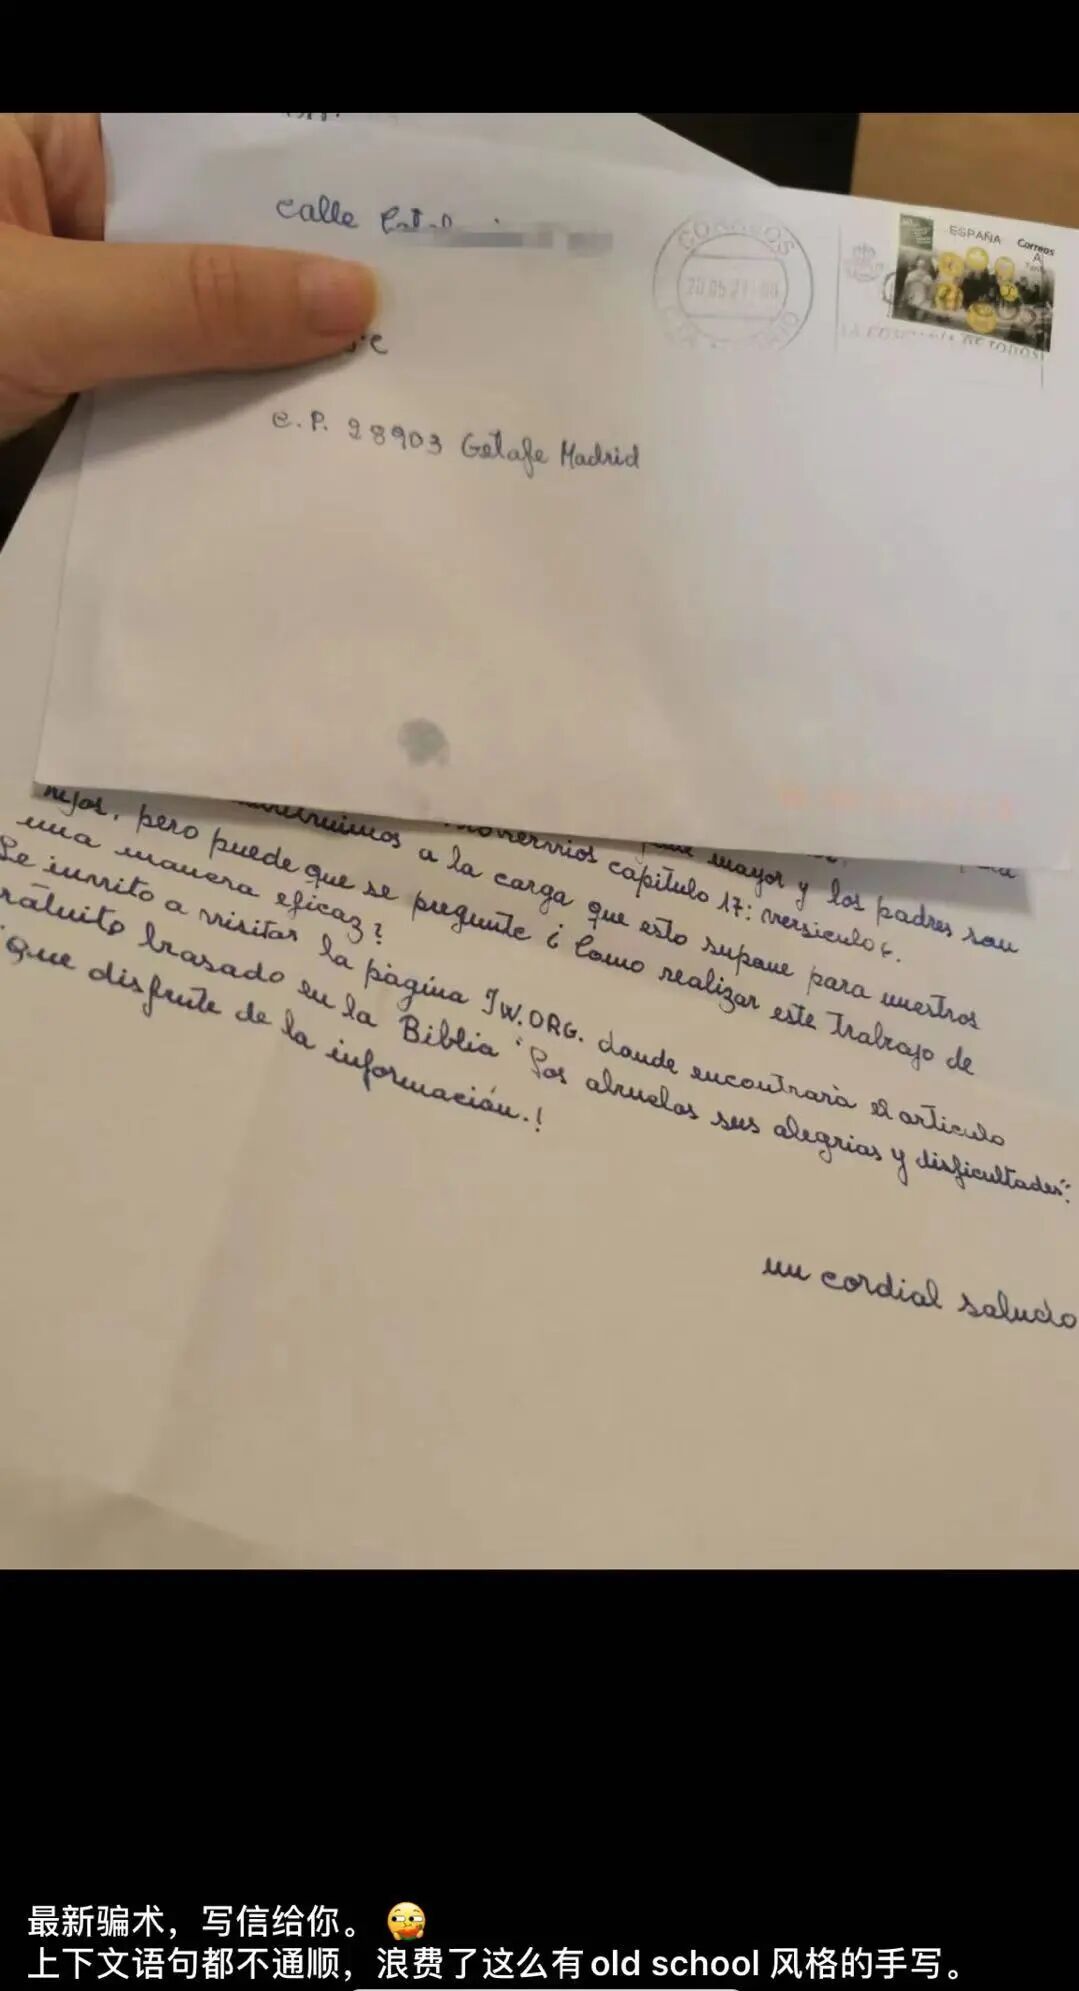 calle
C.P. 28903 Getafe Madrid
CORREOS
20.05.21
ESPAÑA
Correos
A
mayor y los padres son
capitulo 17: versiculo 6.
hijos, pero puede que se pregunte ¿Como realizar este trabajo de
a la carga que esto supone para nuestros
una manera eficaz?
Le invito a visitar la pàgina JW.ORG. donde encontrarà el articulo
gratuito basado en la Biblia "Los abuelos sus alegrias y disficultades".
¡Que disfrute de la información.!
un cordial saludo
最新骗术，写信给你。
上下文语句都不通顺，浪费了这么有old school 风格的手写。